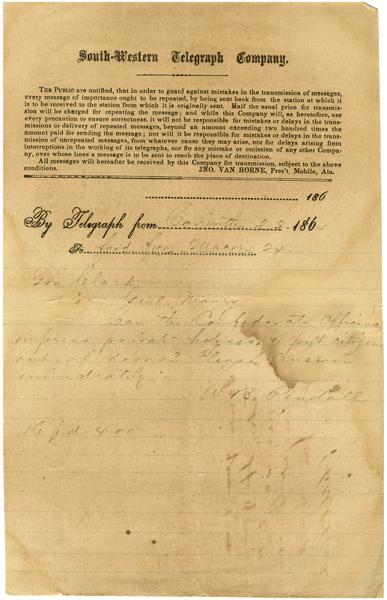 South-Western Telegraph Company.
THE PUBLIC are notified, that in order to guard against mistakes in the transmission of messages,
every message of importance ought to be repeated, by being sent back from the station at which it
is to be received to the station from which it is originally sent. Half the usual price for transmis-
sion will be charged for repeating the message; and while this Company will, as heretofore, use
every precaution to ensure correctness, it will not be responsible for mistakes or delays in the trans-
missions or delivery of repeated messages, beyond an amount exceeding two hundred times the
amount paid for sending the message; nor will it be responsible for mistakes or delays in the trans-
mission of unrepeated messages, from whatever cause they may arise, nor for delays arising from
interruptions in the working of its telegraphs, nor for any mistake or omission of any other Compa-
ny, over whose lines a message is to be sent to reach the place of destination.
All messages will hereafter be received by this Company for transmission, subject to the above
conditions. JNO. VAN HORNE, Pres't, Mobile, Ala.
186
By Telegraph from 2 186
To from Macon 24
Gov Clark
Care Genl Maury
Can the Confederate Officers
impress private houses & put citizens
out of doors? Please Answer
immediately
W B. Pendall
16 pd 400